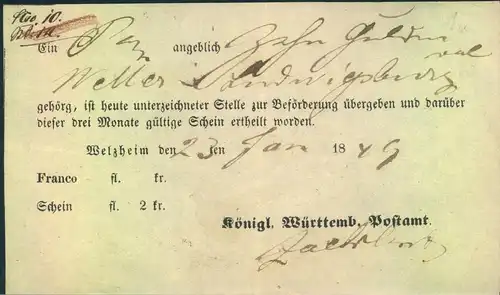 Nro. 10.
Ein angeblich Zehn Gulden
Weller Ludwigsburg
gehörg, ist heute unterzeichneter Stelle zur Beförderung übergeben und darüber
dieser drei Monate gültige Schein ertheilt worden.
Welzheim den 23 ten Jan 1849
Franco fl. kr.
Schein fl. 2 kr.
Königl. Württemb. Postamt.